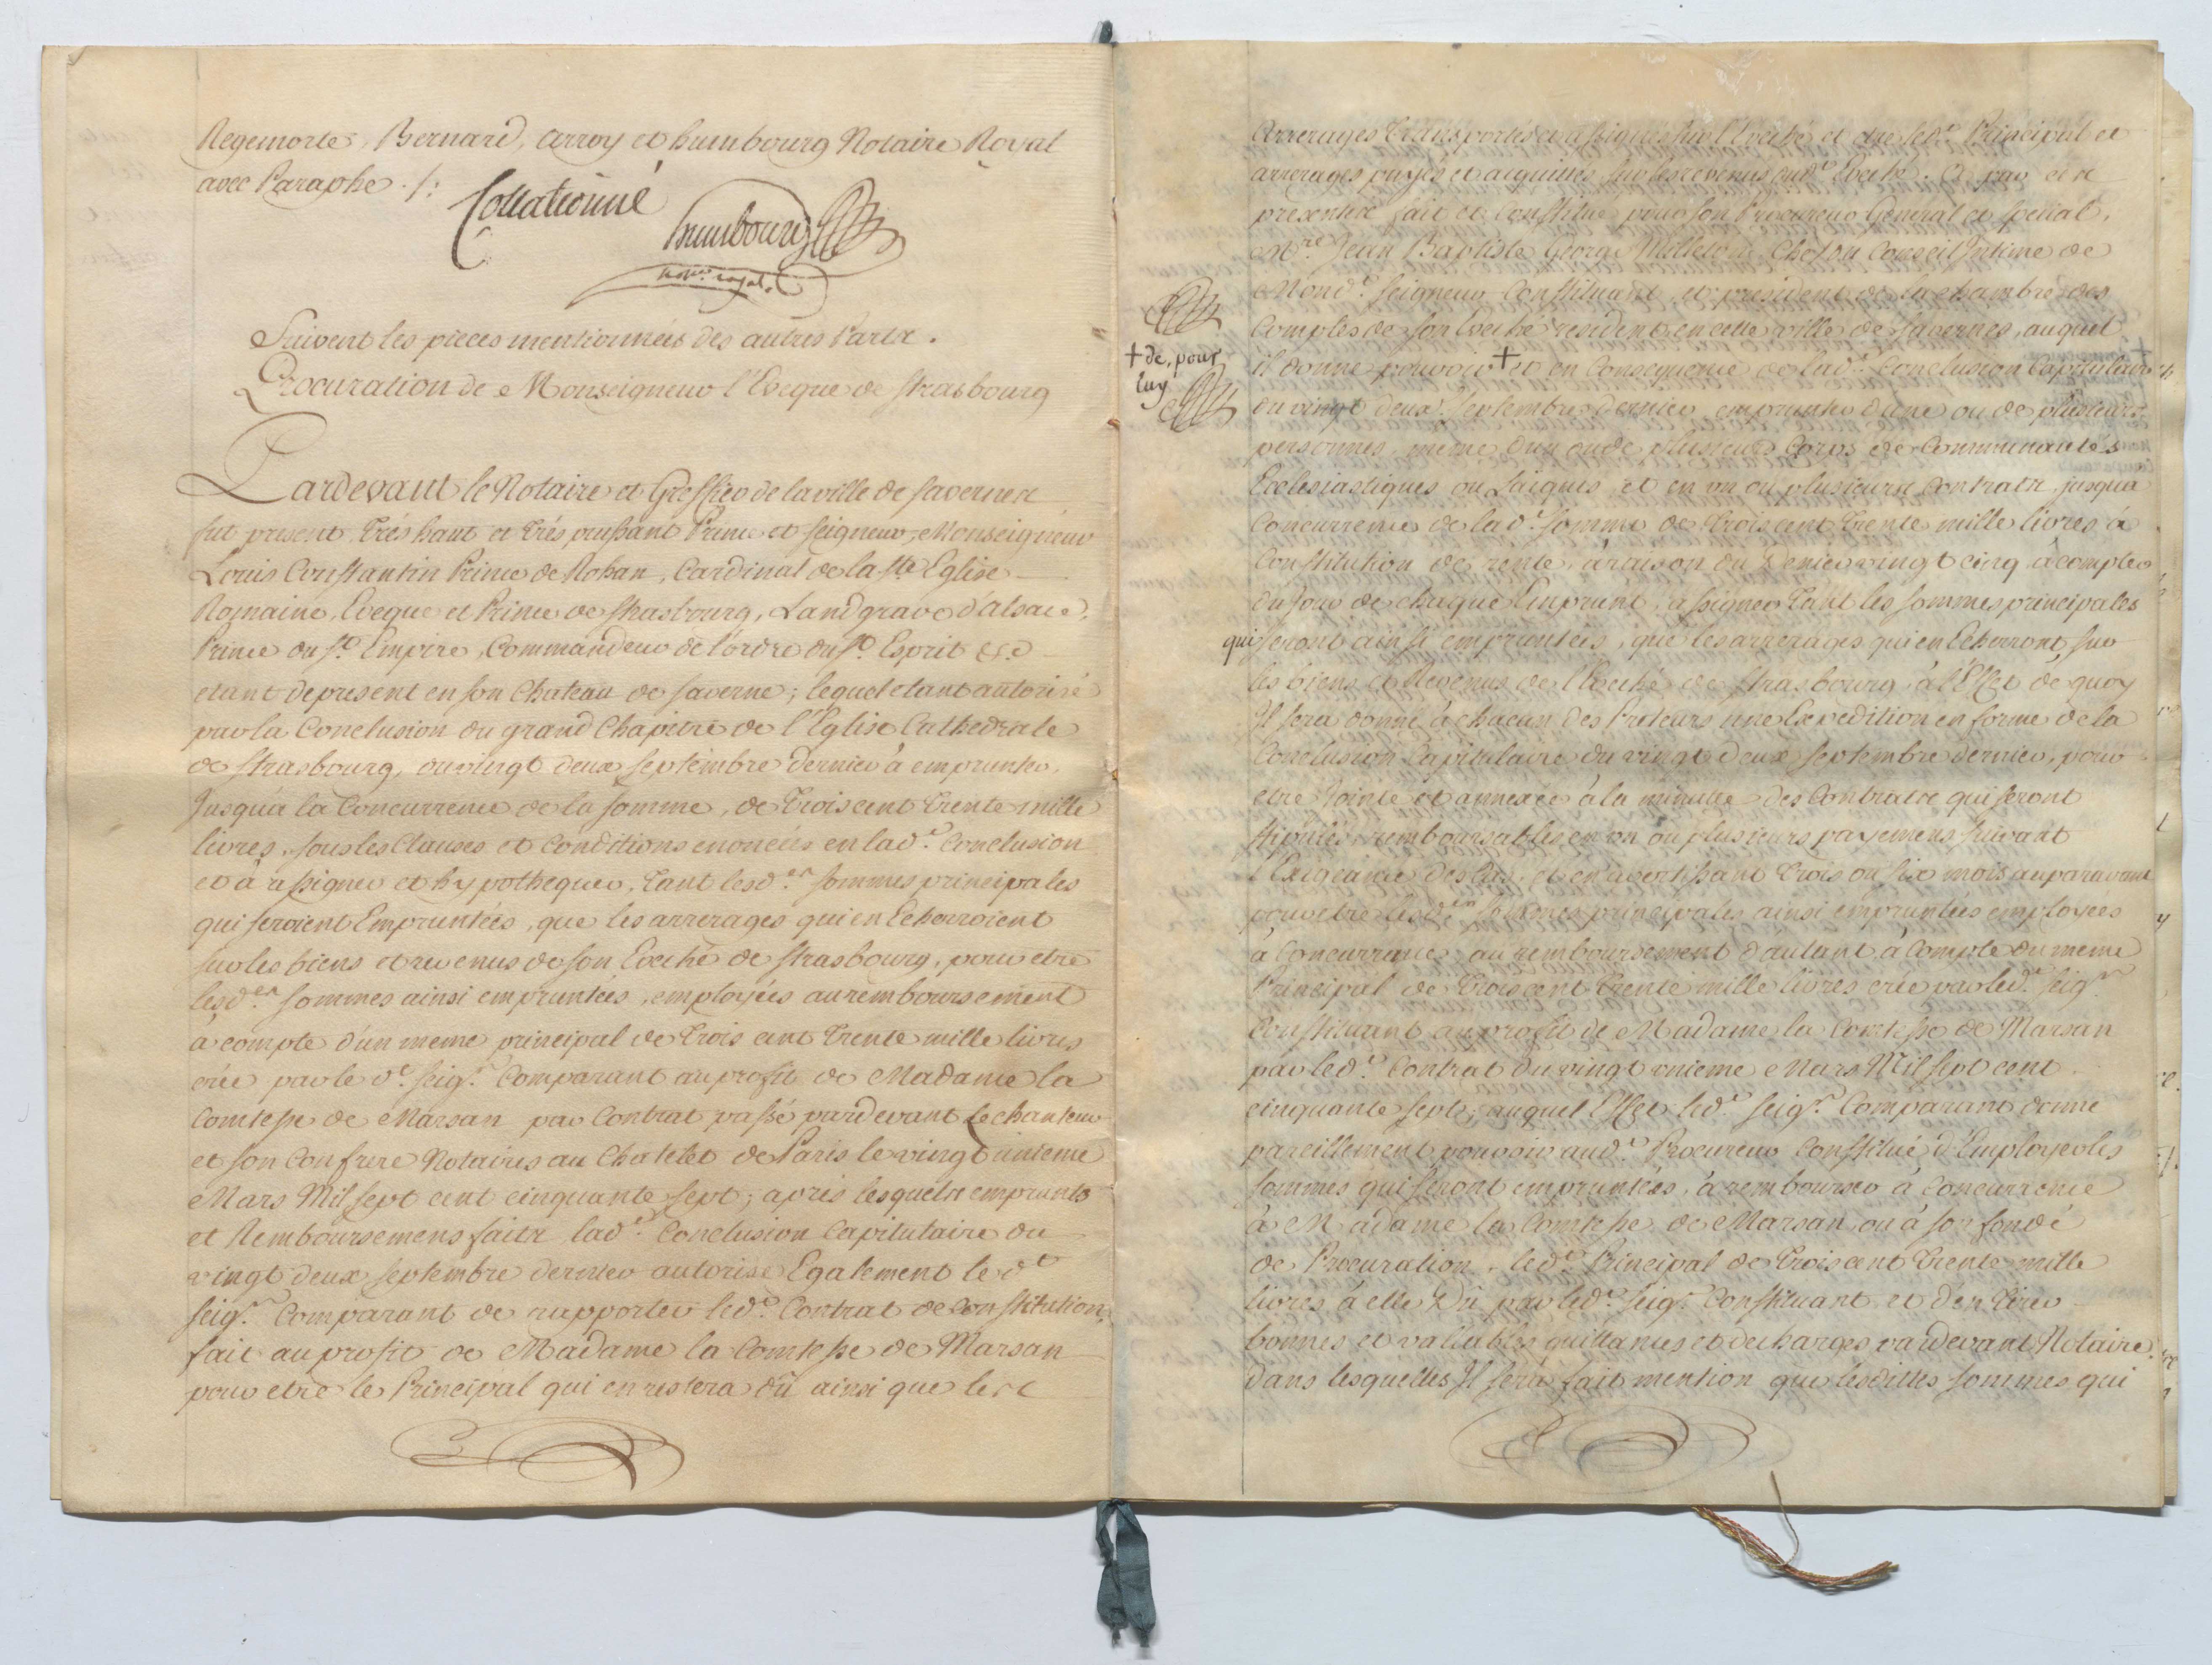 Regemorte, Bernard, arroy et humbourg Notaire Royal
avec Paraphe ./:
Collationné
humbourg
not.re royal.
Suivent les pieces mentionnées des autres Parts.
Procuration de Monseigneur l'Eveque de Strasbourg
Pardevant le Notaire et Greffier de la ville de Saverne
fut present très haut et très puissant Prince et Seigneur, Monseigneur
Louis Constantin Prince de Rohan, Cardinal de la Ste Eglise
Romaine, Eveque et Prince de Strasbourg, Landgrave d'alsace,
Prince du St. Empire, Commandeur de l'ordre du St. Esprit &c.
etant de present en son Chateau de Saverne; lequel etant autorisé
par la Conclusion du grand Chapitre de l'Eglise Cathedrale
de Strasbourg, du vingt deux Septembre dernier à emprunter,
Jusqu'a la Concurrence de la somme, de trois cent trente mille
livres, sous les Clauses et Conditions enoncées en lad.e Conclusion
et à assigner et hypothequer, tant lesd.es sommes principales
qui seroient Empruntées, que les arrerages qui en Echerroient
sur les biens et revenus de son Eveché de Strasbourg, pour etre
lesd.es sommes ainsi empruntées, employées au remboursement
à compte d'un meme principal de trois cent trente mille livres
crée par le d.t Seig.r Comparant au profit de Madame la
Comtesse de Marsan par Contrat passé pardevant Lechanteur
et son Confrere Notaires au Chatelet de Paris le vingt unieme
Mars Mil sept cent cinquante sept; après lesquels emprunts
et Remboursemens faits lad.e Conclusion Capitulaire du
vingt deux septembre dernier autorise Egalement le d.t
Seig.r Comparant de rapporter led.t Contrat de Constitution,
fait au profit de Madame la Comtesse de Marsan
pour etre le Principal qui en restera dû ainsi que les
Arrerages transportés et assignés sur l'Eveché et etre led.t Principal et
arrerages payés et acquittés sur les revenus dud.t Eveché. a par ces
presentes fait et Constitué pour son Procureur General et special,
M.re Jean Baptiste George Milleton Chofou Conseil Intime de
Mond.t Seigneur Constituant et president de la chambre des
Comptes de son Eveché resident en cette ville de Savernes, auquel
+ de, pour
luy
il donne pouvoir + et en Consequence de lad.e Conclusion Capitulaire
du vingt deux Septembre dernier, emprunter d'une ou de plusieurs
personnes, meme d'un ou de plusieurs Corps de Communautés
Ecclesiastiques ou Laiques, et en un ou plusieurs Contrats, jusqu'à
Concurrence de lad.e somme de trois cent trente mille livres à
Constitution de rente, à raison du Denier vingt cinq à compter
du jour de chaque Emprunt, assigner tant les sommes principales
qui seront ainsi empruntées, que les arrerages qui en Echerront sur
les biens et Revenus de l'Eveché de Strasbourg, à l'Effet de quoy
Il sera donné à chacun des Preteurs une Expedition en forme de la
Conclusion Capitulaire du vingt deux Septembre dernier, pour
etre Jointe et annexée à la minute des Contrats qui seront
stipulés, remboursables en un ou plusieurs payemens suivant
l'Exigeance des cas, et en avertissant trois ou six mois auparavant
pour etre lesd.es sommes principales ainsi empruntées employées
à Concurrence au remboursement d'autant à Compte du meme
Principal de trois cent trente mille livres crée par led.t Seig.r
Constituant au profit de Madame la Comtesse de Marsan
par led.t Contrat du vingt unieme Mars Mil sept cent
cinquante sept, auquel Effet led.t Seig.r Comparant donne
pareillement pouvoir aud.t Procureur Constitué d'Employer les
sommes qui seront empruntées, à rembourser à Concurrence
à Madame la Comtesse de Marsan ou à son fondé
de Procuration, led.t Principal de trois cent trente mille
livres à elle Dû par led.t Seig.r Constituant et d'en tirer
bonnes et vallables quittances et decharges pardevant Notaire
dans lesquelles Il sera fait mention que lesdittes sommes qui